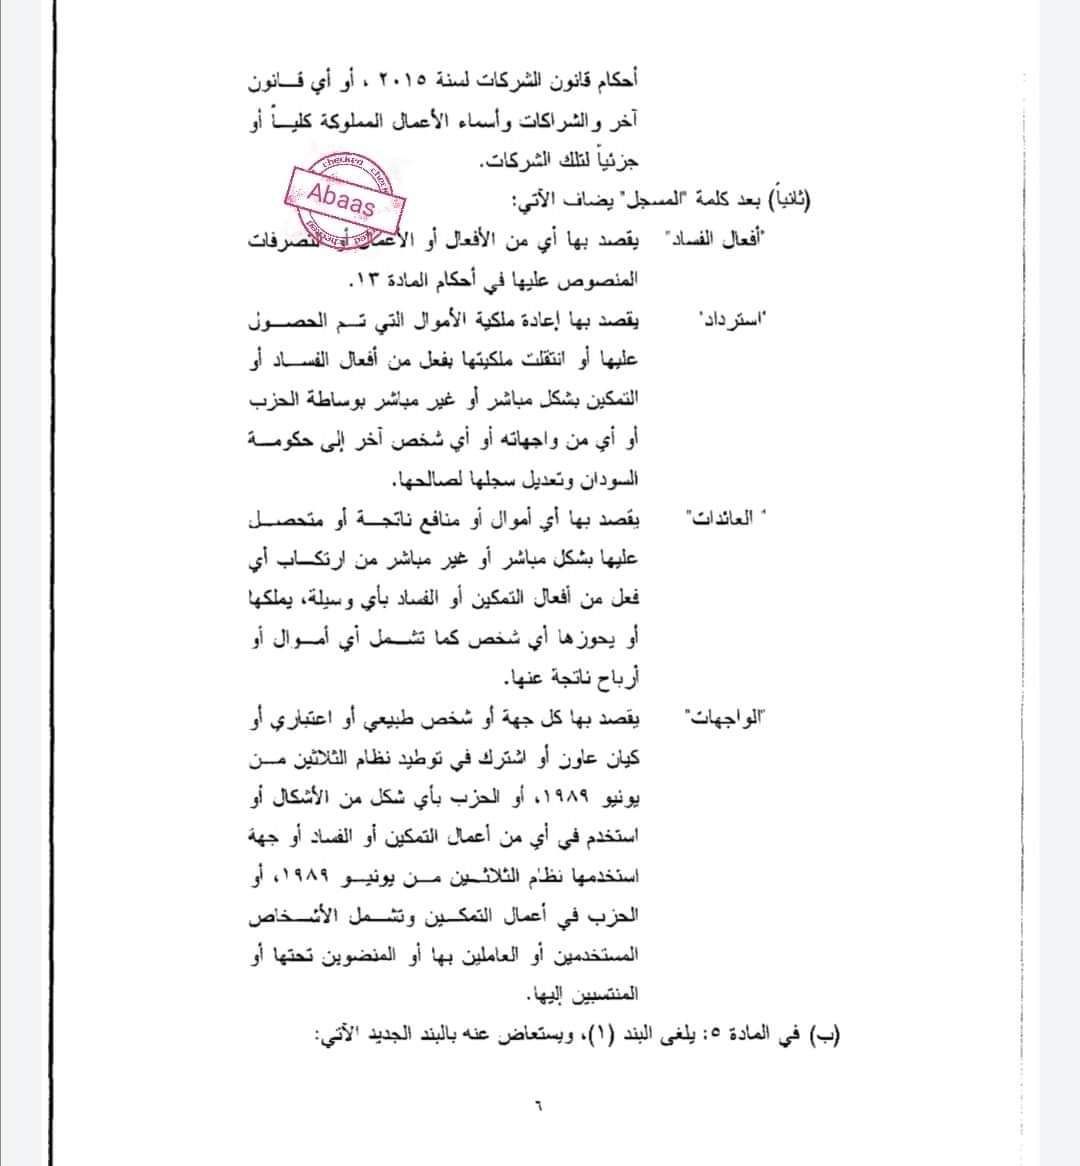 أحكام قانون الشركات لسنة ٢٠١٥ ، أو أي قانون
آخر والشراكات وأسماء الأعمال المملوكة كلياً أو
جزئياً لتلك الشركات.
checked
Abaas
checked
(ثانياً) بعد كلمة "المسجل" يضاف الآتي:
"أفعال الفساد" يقصد بها أي من الأفعال أو الأعمال أو التصرفات
المنصوص عليها في أحكام المادة ١٣.
"استرداد" يقصد بها إعادة ملكية الأموال التي تم الحصول
عليها أو انتقلت ملكيتها بفعل من أفعال الفساد أو
التمكين بشكل مباشر أو غير مباشر بوساطة الحزب
أو أي من واجهاته أو أي شخص آخر إلى حكومة
السودان وتعديل سجلها لصالحها.
" العائدات" يقصد بها أي أموال أو منافع ناتجة أو متحصل
عليها بشكل مباشر أو غير مباشر من ارتكاب أي
فعل من أفعال التمكين أو الفساد بأي وسيلة، يملكها
أو يحوزها أي شخص كما تشمل أي أموال أو
أرباح ناتجة عنها.
"الواجهات" يقصد بها كل جهة أو شخص طبيعي أو اعتباري أو
كيان عاون أو اشترك في توطيد نظام الثلاثين من
يونيو ١٩٨٩، أو الحزب بأي شكل من الأشكال أو
استخدم في أي من أعمال التمكين أو الفساد أو جهة
استخدمها نظام الثلاثين من يونيو ١٩٨٩، أو
الحزب في أعمال التمكين وتشمل الأشخاص
المستخدمين أو العاملين بها أو المنضوين تحتها أو
المنتسبين إليها.
(ب) في المادة ٥: يلغى البند (١)، ويستعاض عنه بالبند الجديد الآتي:
٦